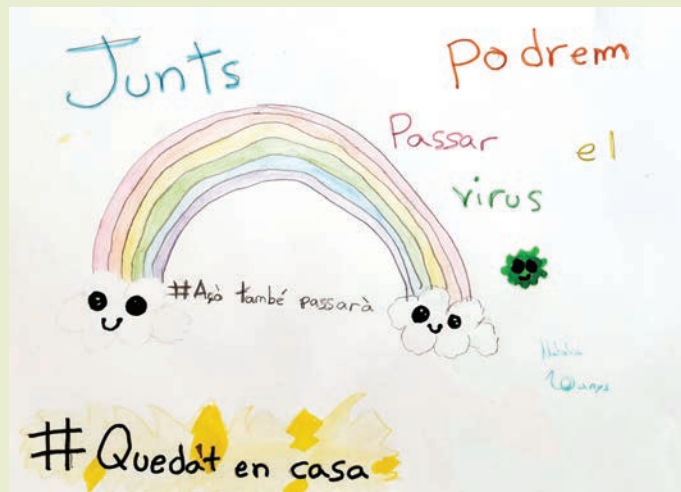 Junts Podrem
Passar el
virus
#Açò també passarà
10 anys
#Queda't en casa